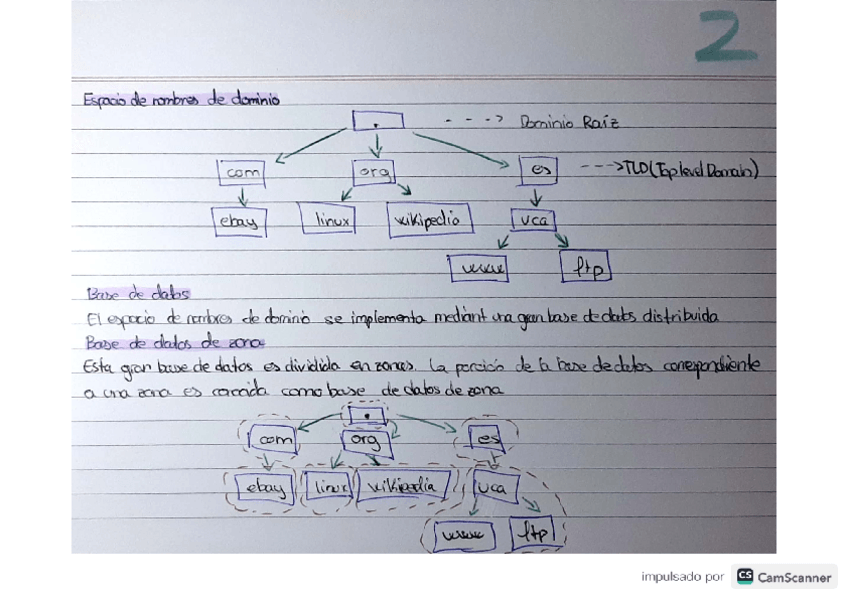 2
Espacio de nombres de dominio
. - - - > Dominio Raíz
com org es - - - > TLD (Top level Domain)
ebay linux wikipedia uca
www ftp
Base de datos
El espacio de nombres de dominio se implementa mediant una gran base de datos distribuida
Base de datos de zona
Esta gran base de datos es dividida en zonas. La porción de la base de datos correspondiente
a una zona es conocida como base de datos de zona
.
com org es
ebay linux wikipedia uca
www ftp
impulsado por CS CamScanner